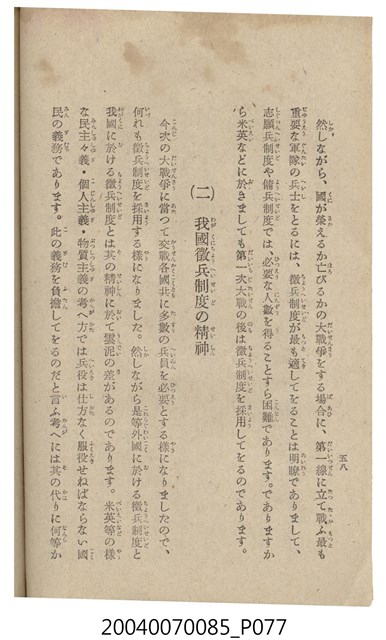 五八
然しながら、國が榮えるか亡びるかの大戰爭をする場合に、第一線に立て戰ふ最も
重要な軍隊の兵士をとるには、徵兵制度が最も適してをることは明瞭でありまして、
志願兵制度や傭兵制度では、必要な人數を得ることすら困難であります。でありますか
ら米英などに於きましても第一次大戰の後は徵兵制度を採用してをるのであります。
(二) 我國徵兵制度の精神
今次の大戰爭に當つて交戰各國は共に多數の兵員を必要とする樣になりましたので、
何れも徵兵制度を採用する樣になりました。然しながら是等外國に於ける徵兵制度と
我國に於ける徵兵制度とは其の精神に於て雲泥の差があるのであります。米英等の樣
な民主々義・個人主義・物質主義の考へ方では兵役は仕方なく服役せねばならない國
民の義務であります。此の義務を負擔してをるのだと言ふ考へには其の代りに何等か
20040070085_P077